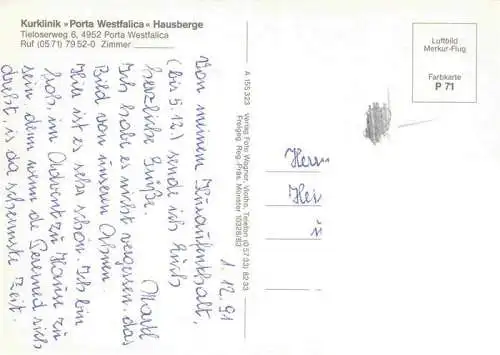 Kurklinik »Porta Westfalica« Hausberge
Tieloserweg 6, 4952 Porta Westfalica
Ruf (05 71) 79 52-0 Zimmer
1.12.91
Von meinem Kuraufenthalt,
(bis 5.12.) sende ich Euch
herzliche Grüße.
Ich habe es nicht vergessen, das
Bild von unseren Ahnen.
Hier ist es sehr schön. Ich bin
froh, im Advent zu Hause zu
sein, denn wenn de Peremed sich
dreht, is da schennste Zeit.
A 155 323 Verlag Foto Wagner, Vlotho, Telefon (0 57 33) 82 33
Freigeg. Reg.-Präs. Münster 10328/83
Luftbild
Merkur-Flug
Farbkarte
P 71
Herrn